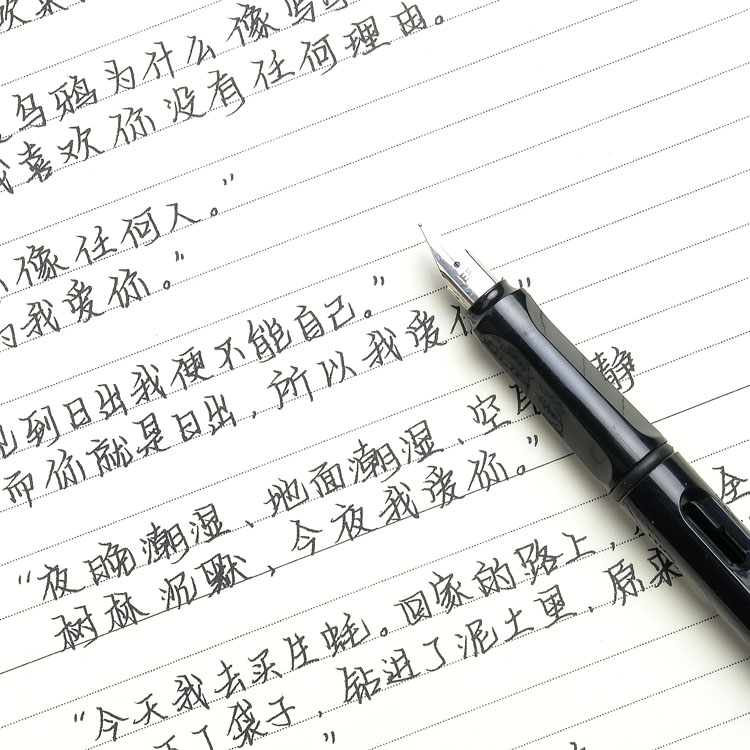 乌鸦为什么像写
我喜欢你没有任何理由。
像任何人。”
的我爱你。”
见到日出我便不能自己。”
而你就是日出，所以我爱你”
“夜晚潮湿、地面潮湿、空 静
树林沉默，今夜我爱你。”
“今天我去买生蚝。回家的路上， 全
了袋子，钻进了泥土里，原来
”